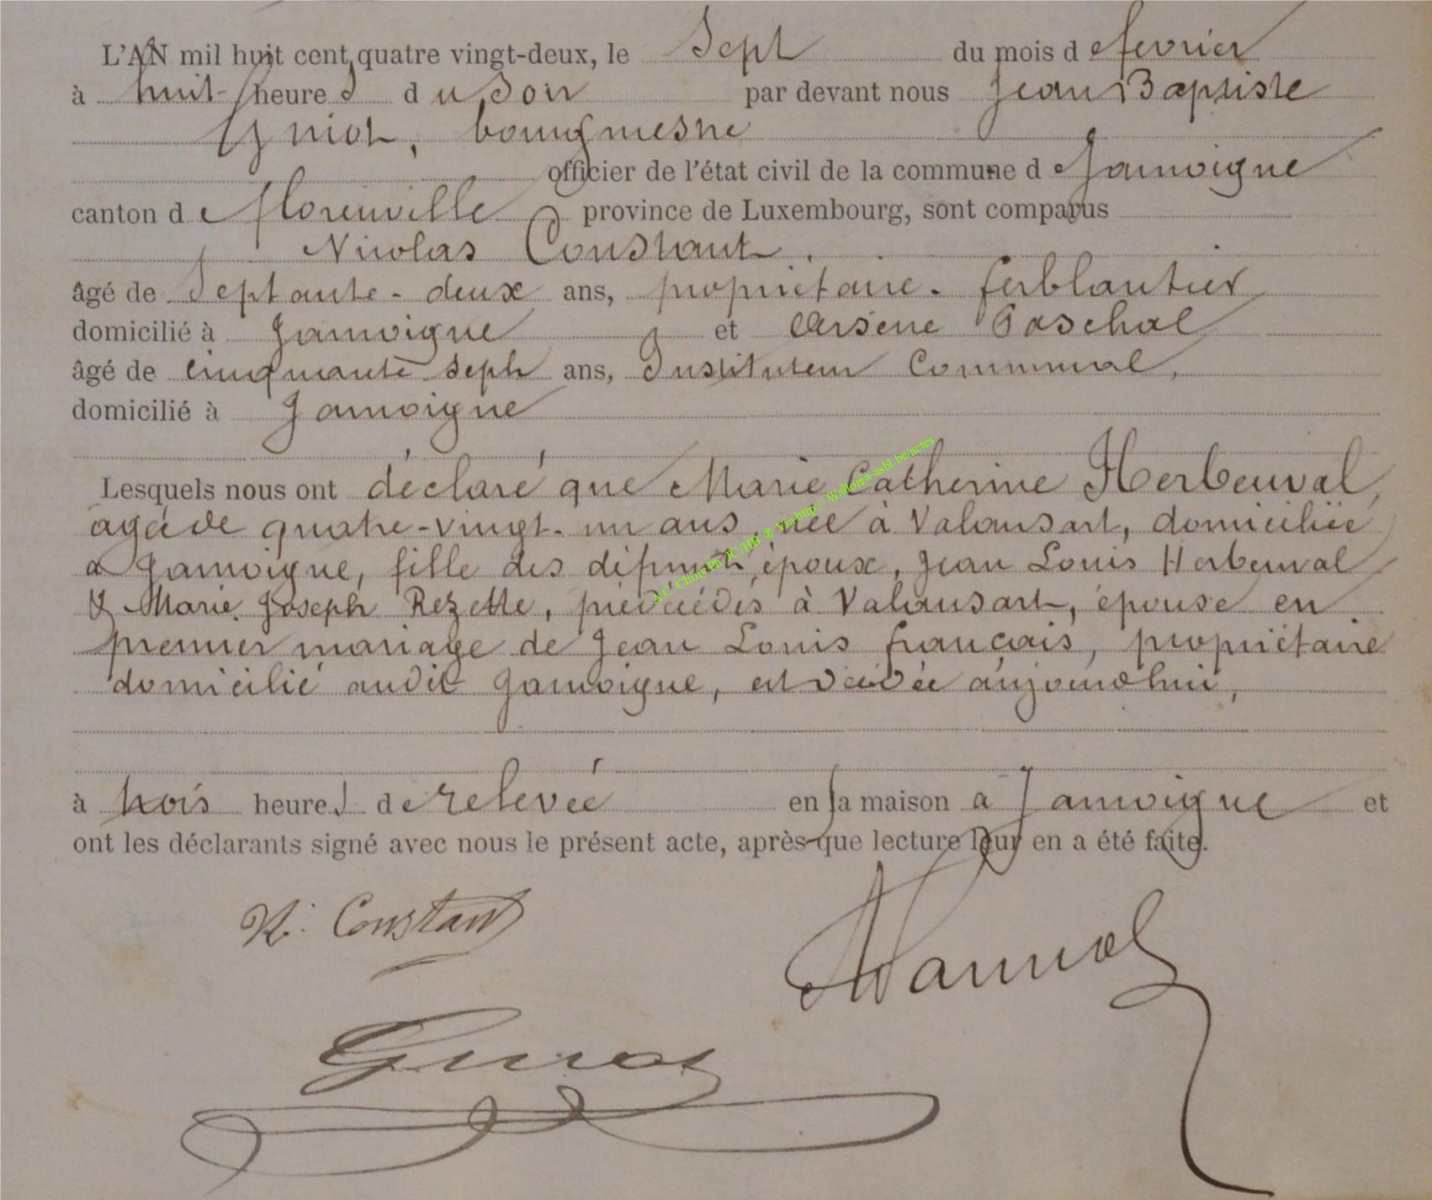 L'AN mil huit cent quatre vingt-deux, le Sept du mois de fevrier
à huit heures du Soir par devant nous Jean Baptiste
Guiot, bourgmestre
officier de l'état civil de la commune de Jamoigne
canton de Florenville province de Luxembourg, sont comparus
Nicolas Constant.
âgé de Septante-deux ans, propriétaire. ferblantier
domicilié à Jamoigne et Arsène Paschal
âgé de cinquante sept ans, Instituteur Communal,
domicilié à Jamoigne
Lesquels nous ont déclaré que Marie Catherine Herbeuval,
agée de quatre-vingt-un ans, née à Valansart, domiciliée
à Jamoigne, fille des défunts époux, Jean Louis Herbeuval
& Marie Joseph Rezette, prédécédés à Valansart, épouse en
premier mariage de Jean Louis français, propriétaire
domicilié audit Jamoigne, est décédée aujourdhui,
à trois heures de relevée en sa maison à Jamoigne et
ont les déclarants signé avec nous le présent acte, après que lecture leur en a été faite.
N. Constant
Guiot